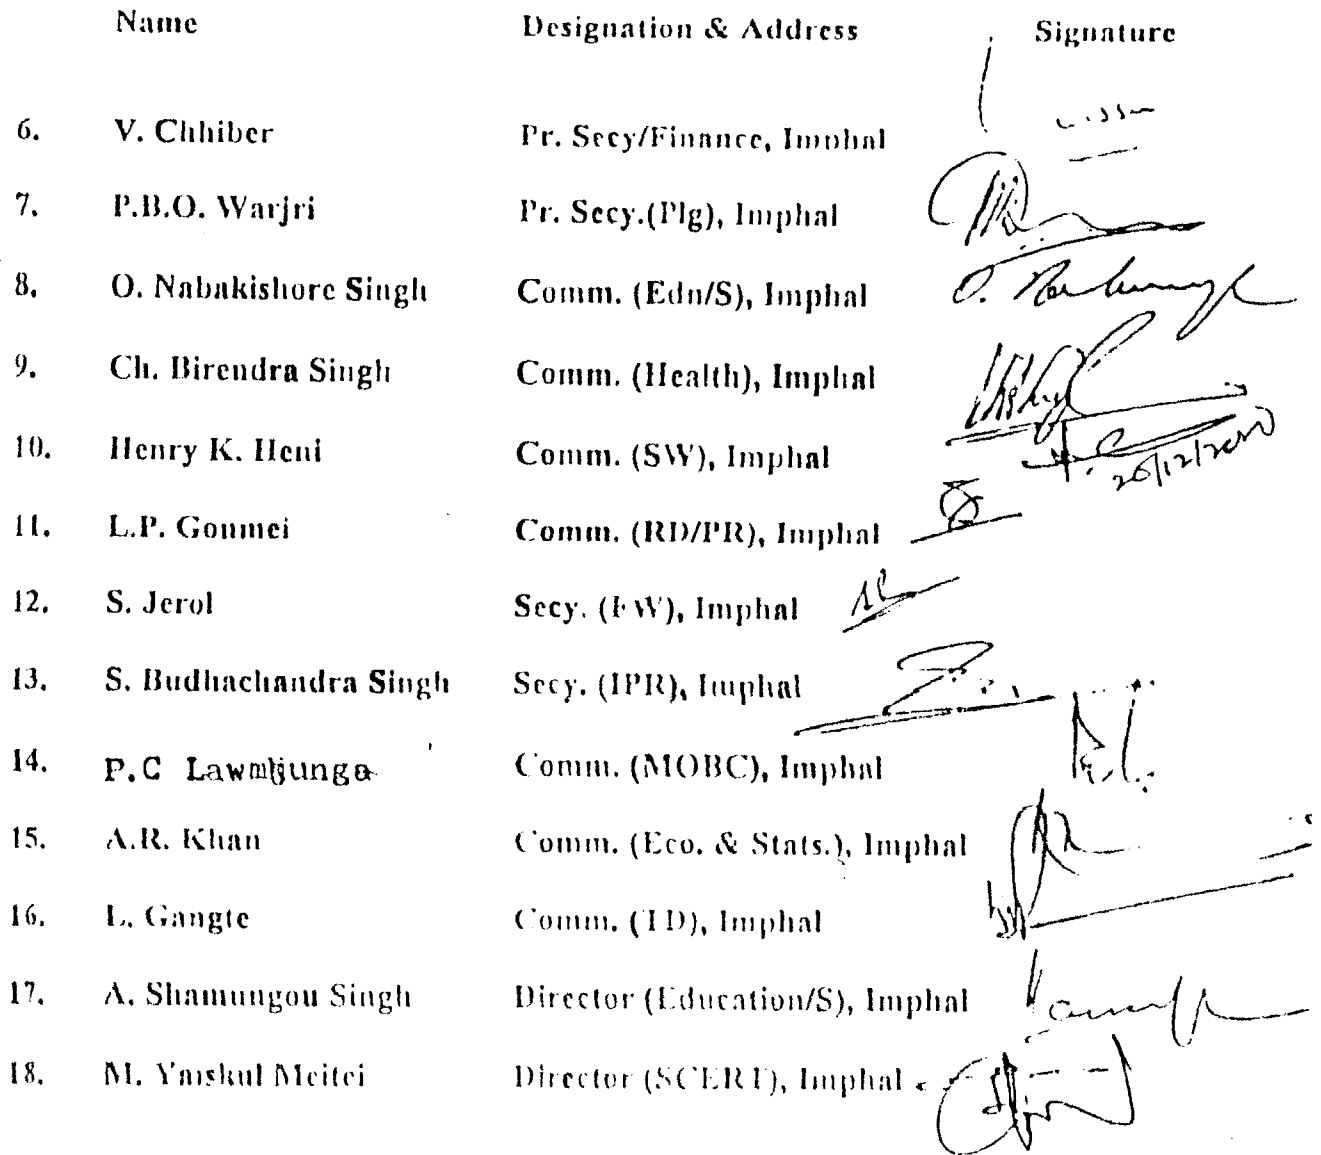 Name Designation & Address Signature
6. V. Chhiber Pr. Secy/Finance, Imphal
7. P.B.O. Warjri Pr. Secy.(Plg), Imphal
8. O. Nabakishore Singh Comm. (Edn/S), Imphal O.
9. Ch. Birendra Singh Comm. (Health), Imphal
10. Henry K. Heni Comm. (SW), Imphal 26/12/2000
11. L.P. Gonmei Comm. (RD/PR), Imphal
12. S. Jerol Secy. (FW), Imphal
13. S. Budhachandra Singh Secy. (IPR), Imphal
14. P.C Comm. (MOBC), Imphal
15. A.R. Khan Comm. (Eco. & Stats.), Imphal
16. L. Gangte Comm. (TD), Imphal
17. A. Shamungou Singh Director (Education/S), Imphal
18. M. Yaiskul Meitei Director (SCERT), Imphal